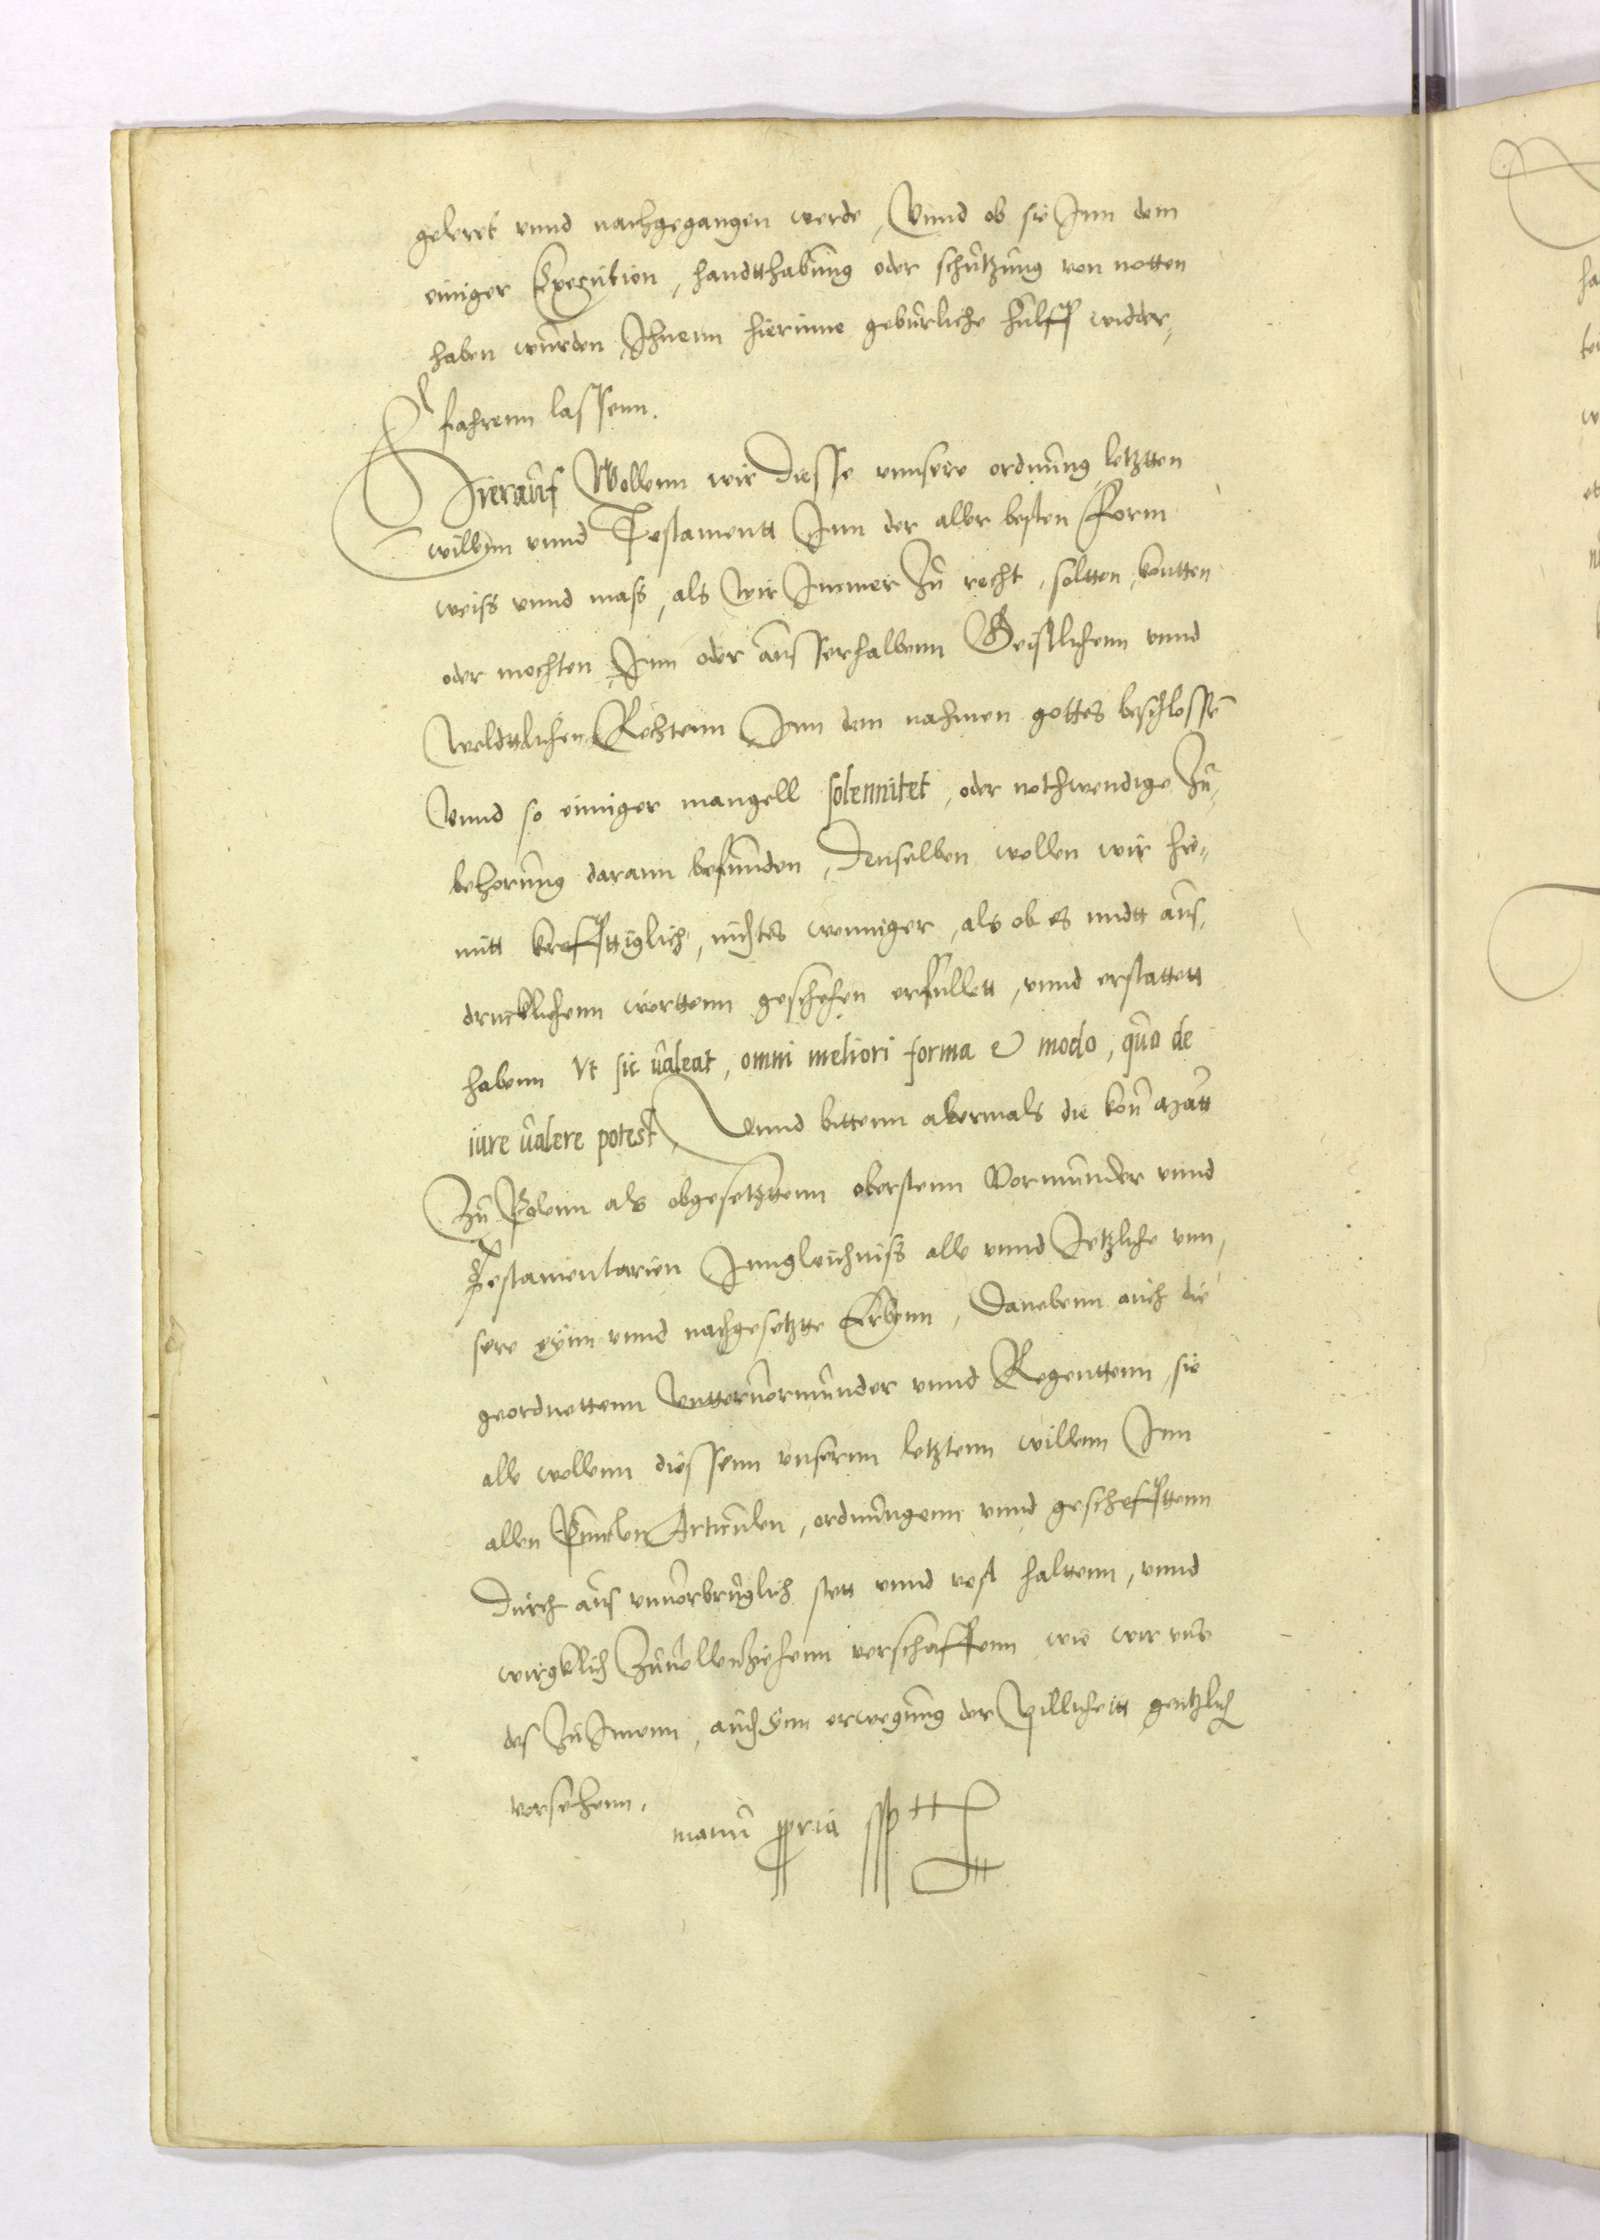 geleret unnd nachgegangen werde, Unnd ob sie Inn dem
einiger Execution, handtthabung oder schützung von notten
haben würden Ihnenn hierinne gebürliche hülff widder,
fahrenn lassenn.
Hierauf Wollenn wir diesse unnsere ordnung letztten
willenn unnd Testamentt Inn der aller besten Form
weiss unnd mass, als wir Immer Zu recht, soltten, kontten
oder mochten Inn oder ausserhalbenn Geistlichenn unnd
Weldttlichen Rechtenn Inn dem nahmen gottes beschlossen
Unnd so einniger mangell solennitet, oder nothwendige Zu,
behorung darann befunden, denselben wollen wir hie,
mitt kreffttiglich, nichtes wenniger, als ob es midtt aus,
drucklichenn worttenn geschehen erfullett, unnd erstattett
habenn Ut sic valeat, omni meliori forma & modo, quo de
iure valere potest, Unnd bittenn abermals die kon Matt
Zu Polenn als obgesetzttenn oberstenn Vormunder unnd
Testamentarien Inngleichniss alle unnd Jetzliche unn,
sere eyin unnd nachgesetztte Erbenn, Danebenn auch die
geordnettenn Unttervormunder unnd Regenttenn, sie
alle wollenn diessenn unsernn letztenn willenn Inn
allen Puncten Articulen, ordnungenn unnd gescheffttenn
durch aus unvorbruglich stett unnd vest halttenn, unnd
wirgklich Zuvollenziehenn verschaffenn wie wir uns
des Zu Innenn, auch Inn erwegung der Pillicheitt gentzlich
vorsehenn.
manu ppria sspt